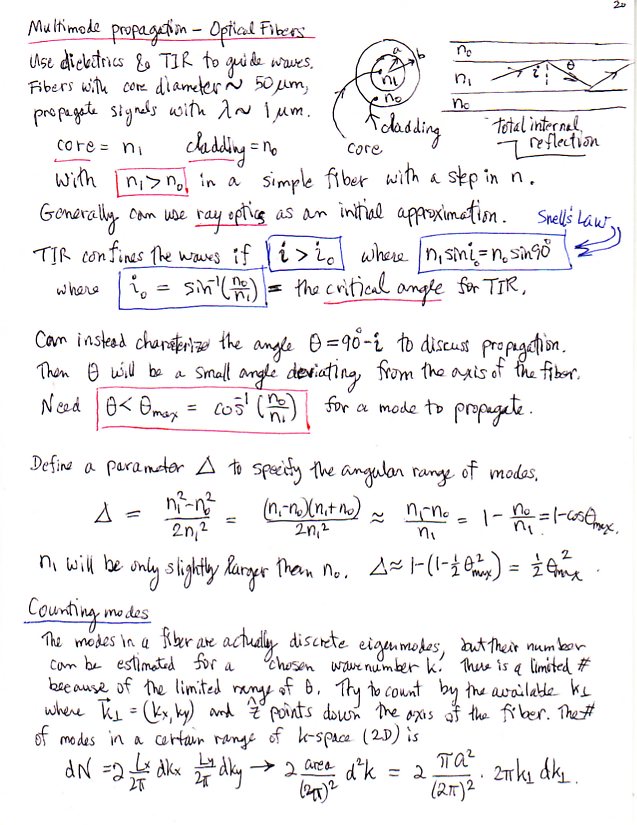 20
Multimode propagation – Optical Fibers
Use dielectrics & TIR to guide waves.
Fibers with core diameter ~ 50 μm,
propagate signals with λ ~ 1 μm.
a
b
n₁
n₀
cladding
core
n₀
n₁
i
θ
n₀
total internal
reflection
core = n₁ cladding = n₀
With n₁ > n₀ in a simple fiber with a step in n.
Generally can use ray optics as an initial approximation.
Snell's Law
TIR confines the waves if i > i₀ where n₁ sin i₀ = n₀ sin 90°
where i₀ = sin⁻¹(n₀/n₁) = the critical angle for TIR.
Can instead charcterize the angle θ = 90° - i to discuss propagation.
Then θ will be a small angle deviating from the axis of the fiber.
Need θ < θmax = cos⁻¹(n₀/n₁) for a mode to propagate.
Define a parameter Δ to specify the angular range of modes.
Δ = (n₁² - n₀²)/2n₁² = (n₁-n₀)(n₁+n₀)/2n₁² ≈ (n₁-n₀)/n₁ = 1 - n₀/n₁ = 1 - cosθmax.
n₁ will be only slightly larger than n₀. Δ ≈ 1-(1-½θ²max) = ½θ²max.
Counting modes
The modes in a fiber are actually discrete eigenmodes, but their number
can be estimated for a chosen wavenumber k. There is a limited #
because of the limited range of θ. Try to count by the available k⊥
where k⃗⊥ = (kx, ky) and ẑ points down the axis of the fiber. The #
of modes in a certain range of k-space (2D) is
dN = 2 Lx/2π dkx Ly/2π dky → 2 area/(2π)² d²k = 2 πa²/(2π)² · 2πk⊥ dk⊥.